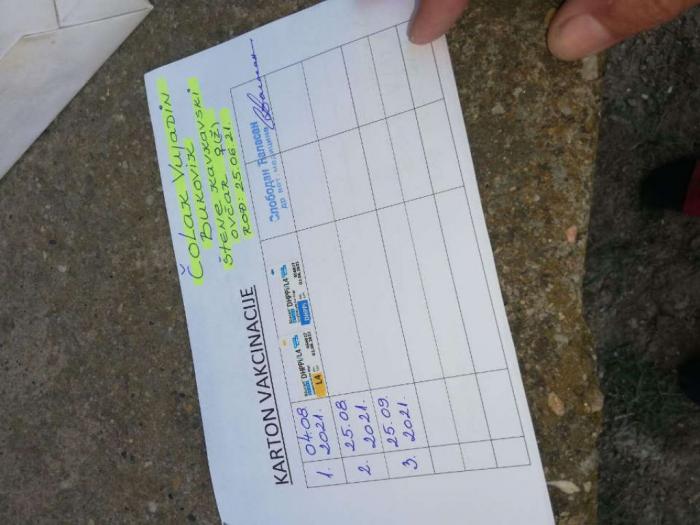 Čolak Vujadin
Bukovix
štene kavkavski
ovčar ♀(ž)
rođ: 25.06.21.
KARTON VAKCINACIJE
1. 04.08.
2021.
DHPPi/L4
L4
DHPPi/L4
DHPPi
Слободан Ћапасан
др вет. медицине
2. 25.08.
2021.
3. 25.09.
2021.